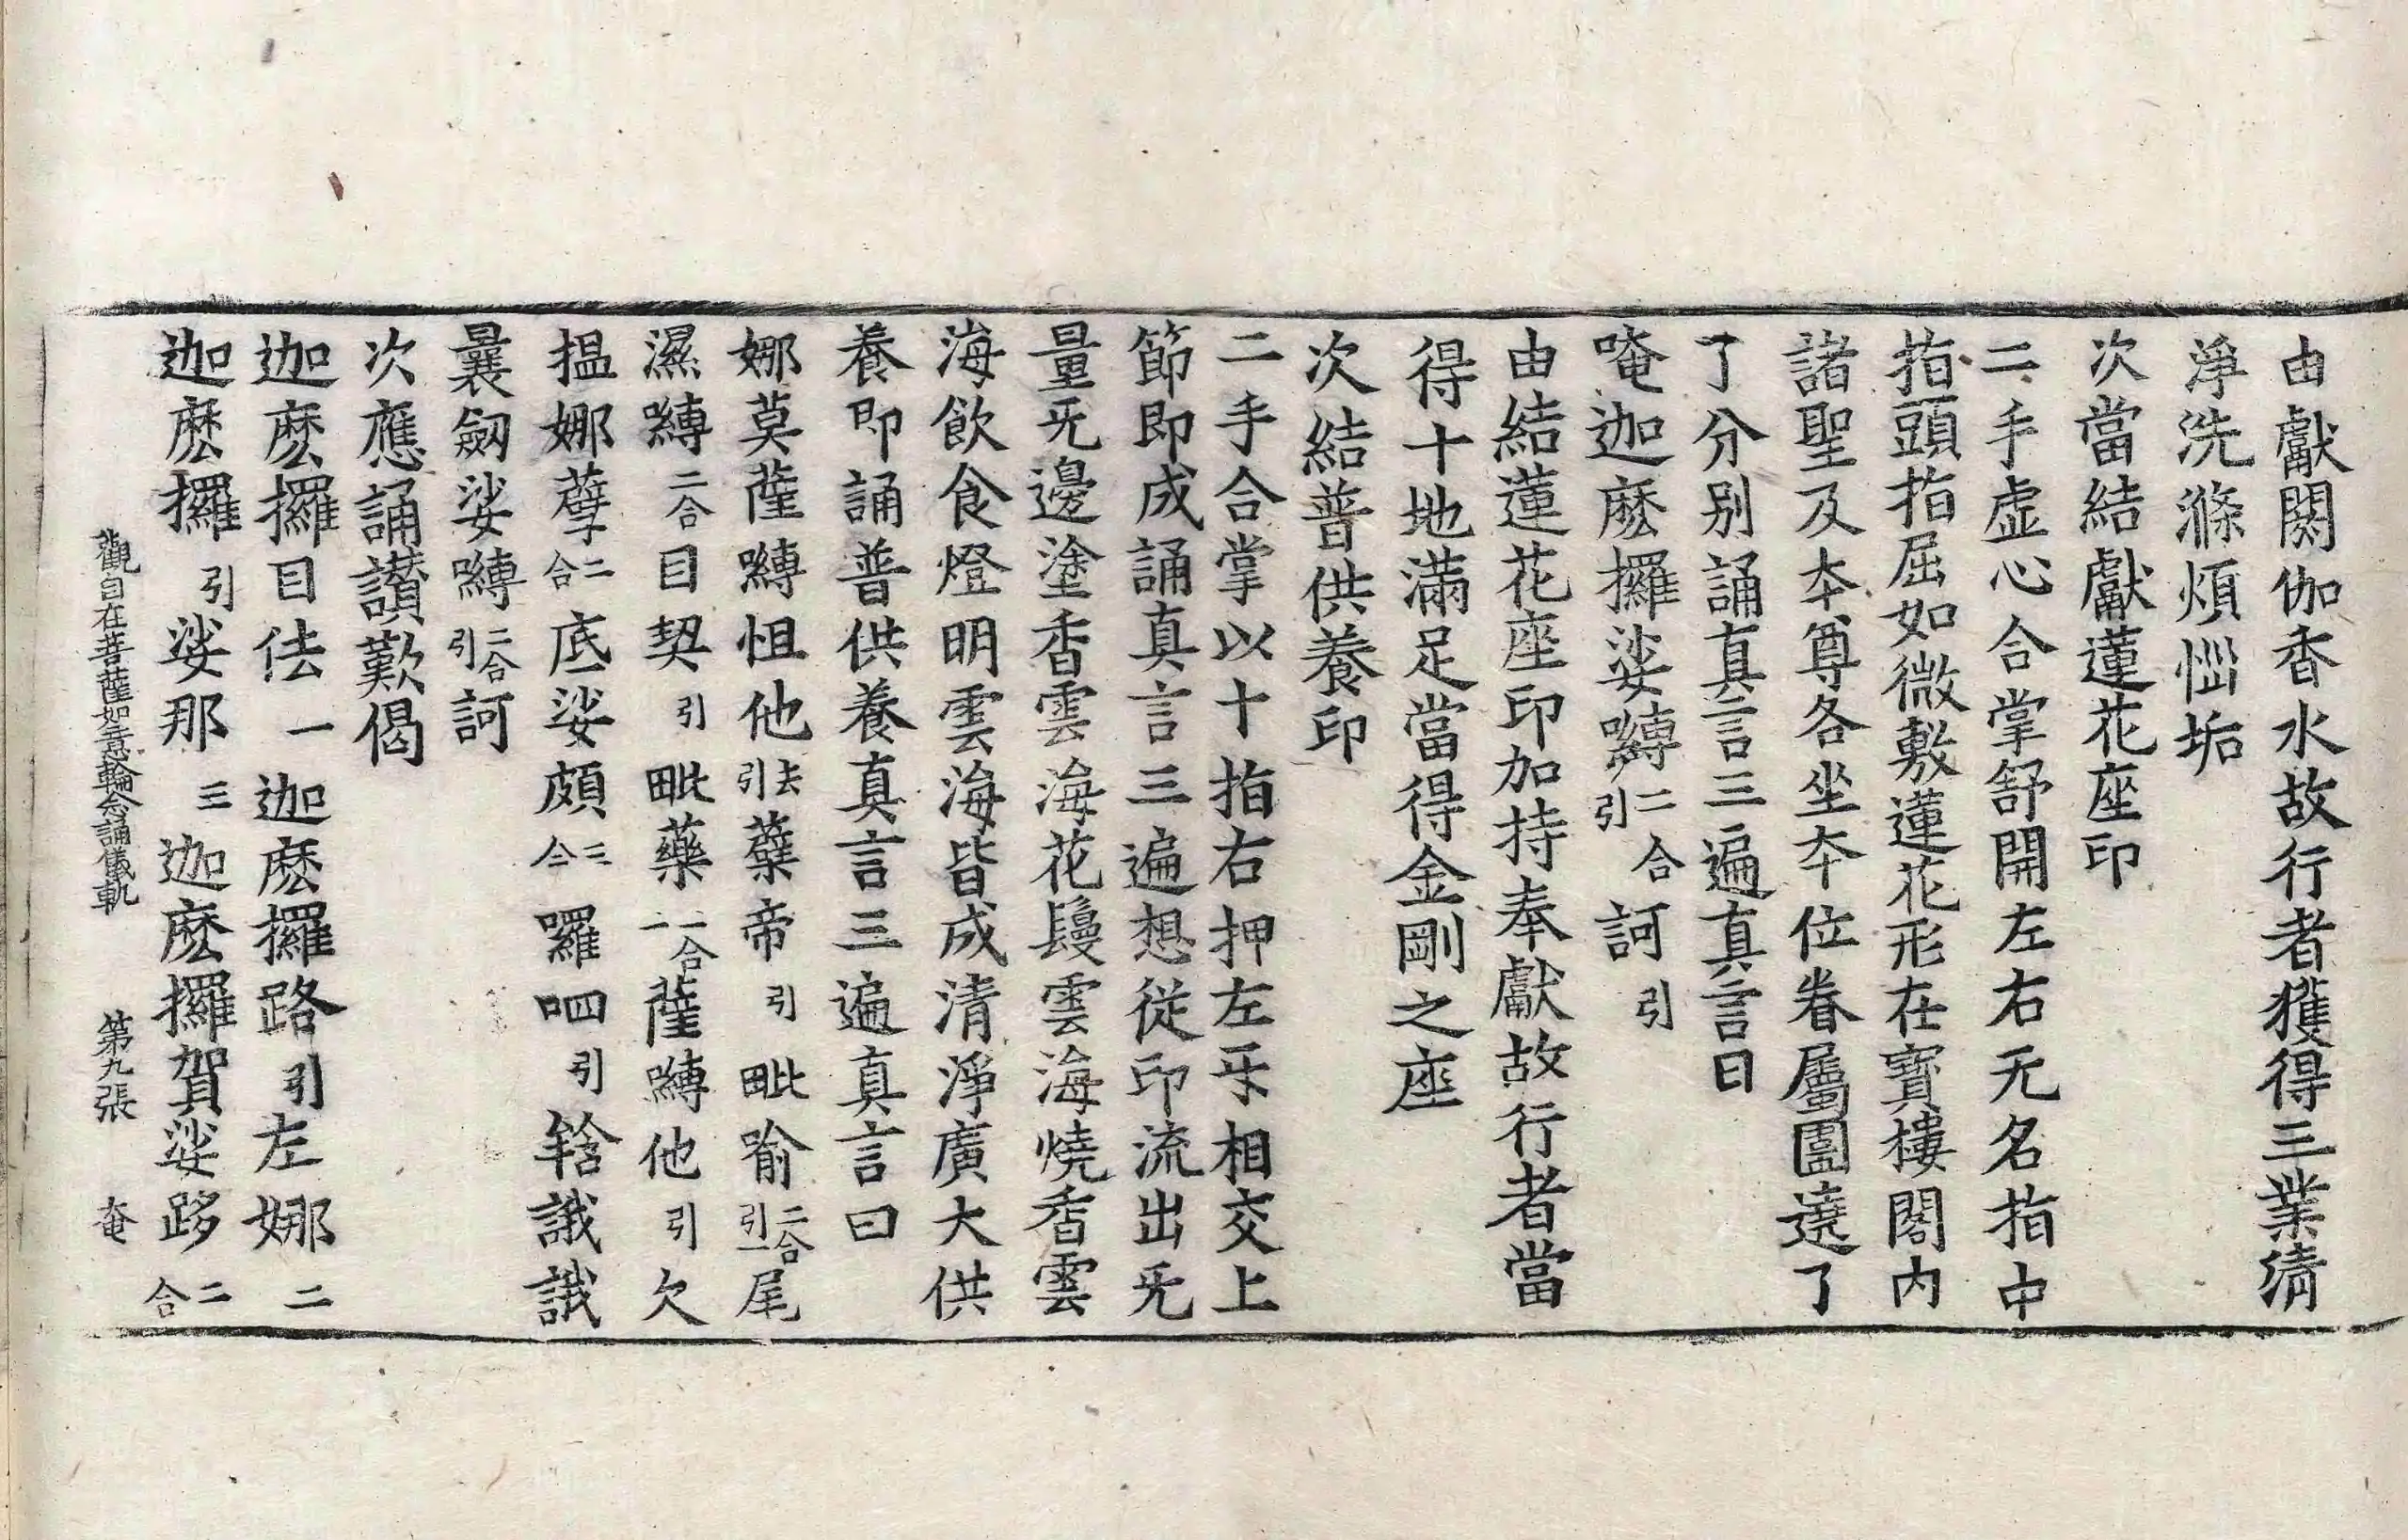 由獻閼伽香水故行者獲得三業清
淨洗滌煩惱垢
次當結獻蓮花座印
二手虛心合掌舒開左右无名指中
指頭指屈如微敷蓮花形在寶樓閣内
諸聖及本尊各坐本位眷屬圍遶了
了分別誦真言三遍真言曰
唵迦麽攞娑嚩二合引訶引
由結蓮花座印加持奉獻故行者當
得十地滿足當得金剛之座
次結普供養印
二手合掌以十指右押左牙相交上
節即成誦真言三遍想從印流出无
量无邊塗香雲海花鬘雲海燒香雲
海飲食燈明雲海皆成清淨廣大供
養即誦普供養真言三遍真言曰
娜莫薩嚩怛他去引蘖帝引毗喻二合引一尾
濕嚩二合目契引毗藥二合二薩嚩他引欠
揾娜蘖二合底娑頗二合囉呬引𤚥誐誐
曩劒娑嚩二合引訶
次應誦讚歎偈
迦麽攞目佉一迦麽攞路引左娜二
迦麽攞引娑那三迦麽攞賀娑跢二合
觀自在菩薩如意輪念誦儀軌 第九張 奄